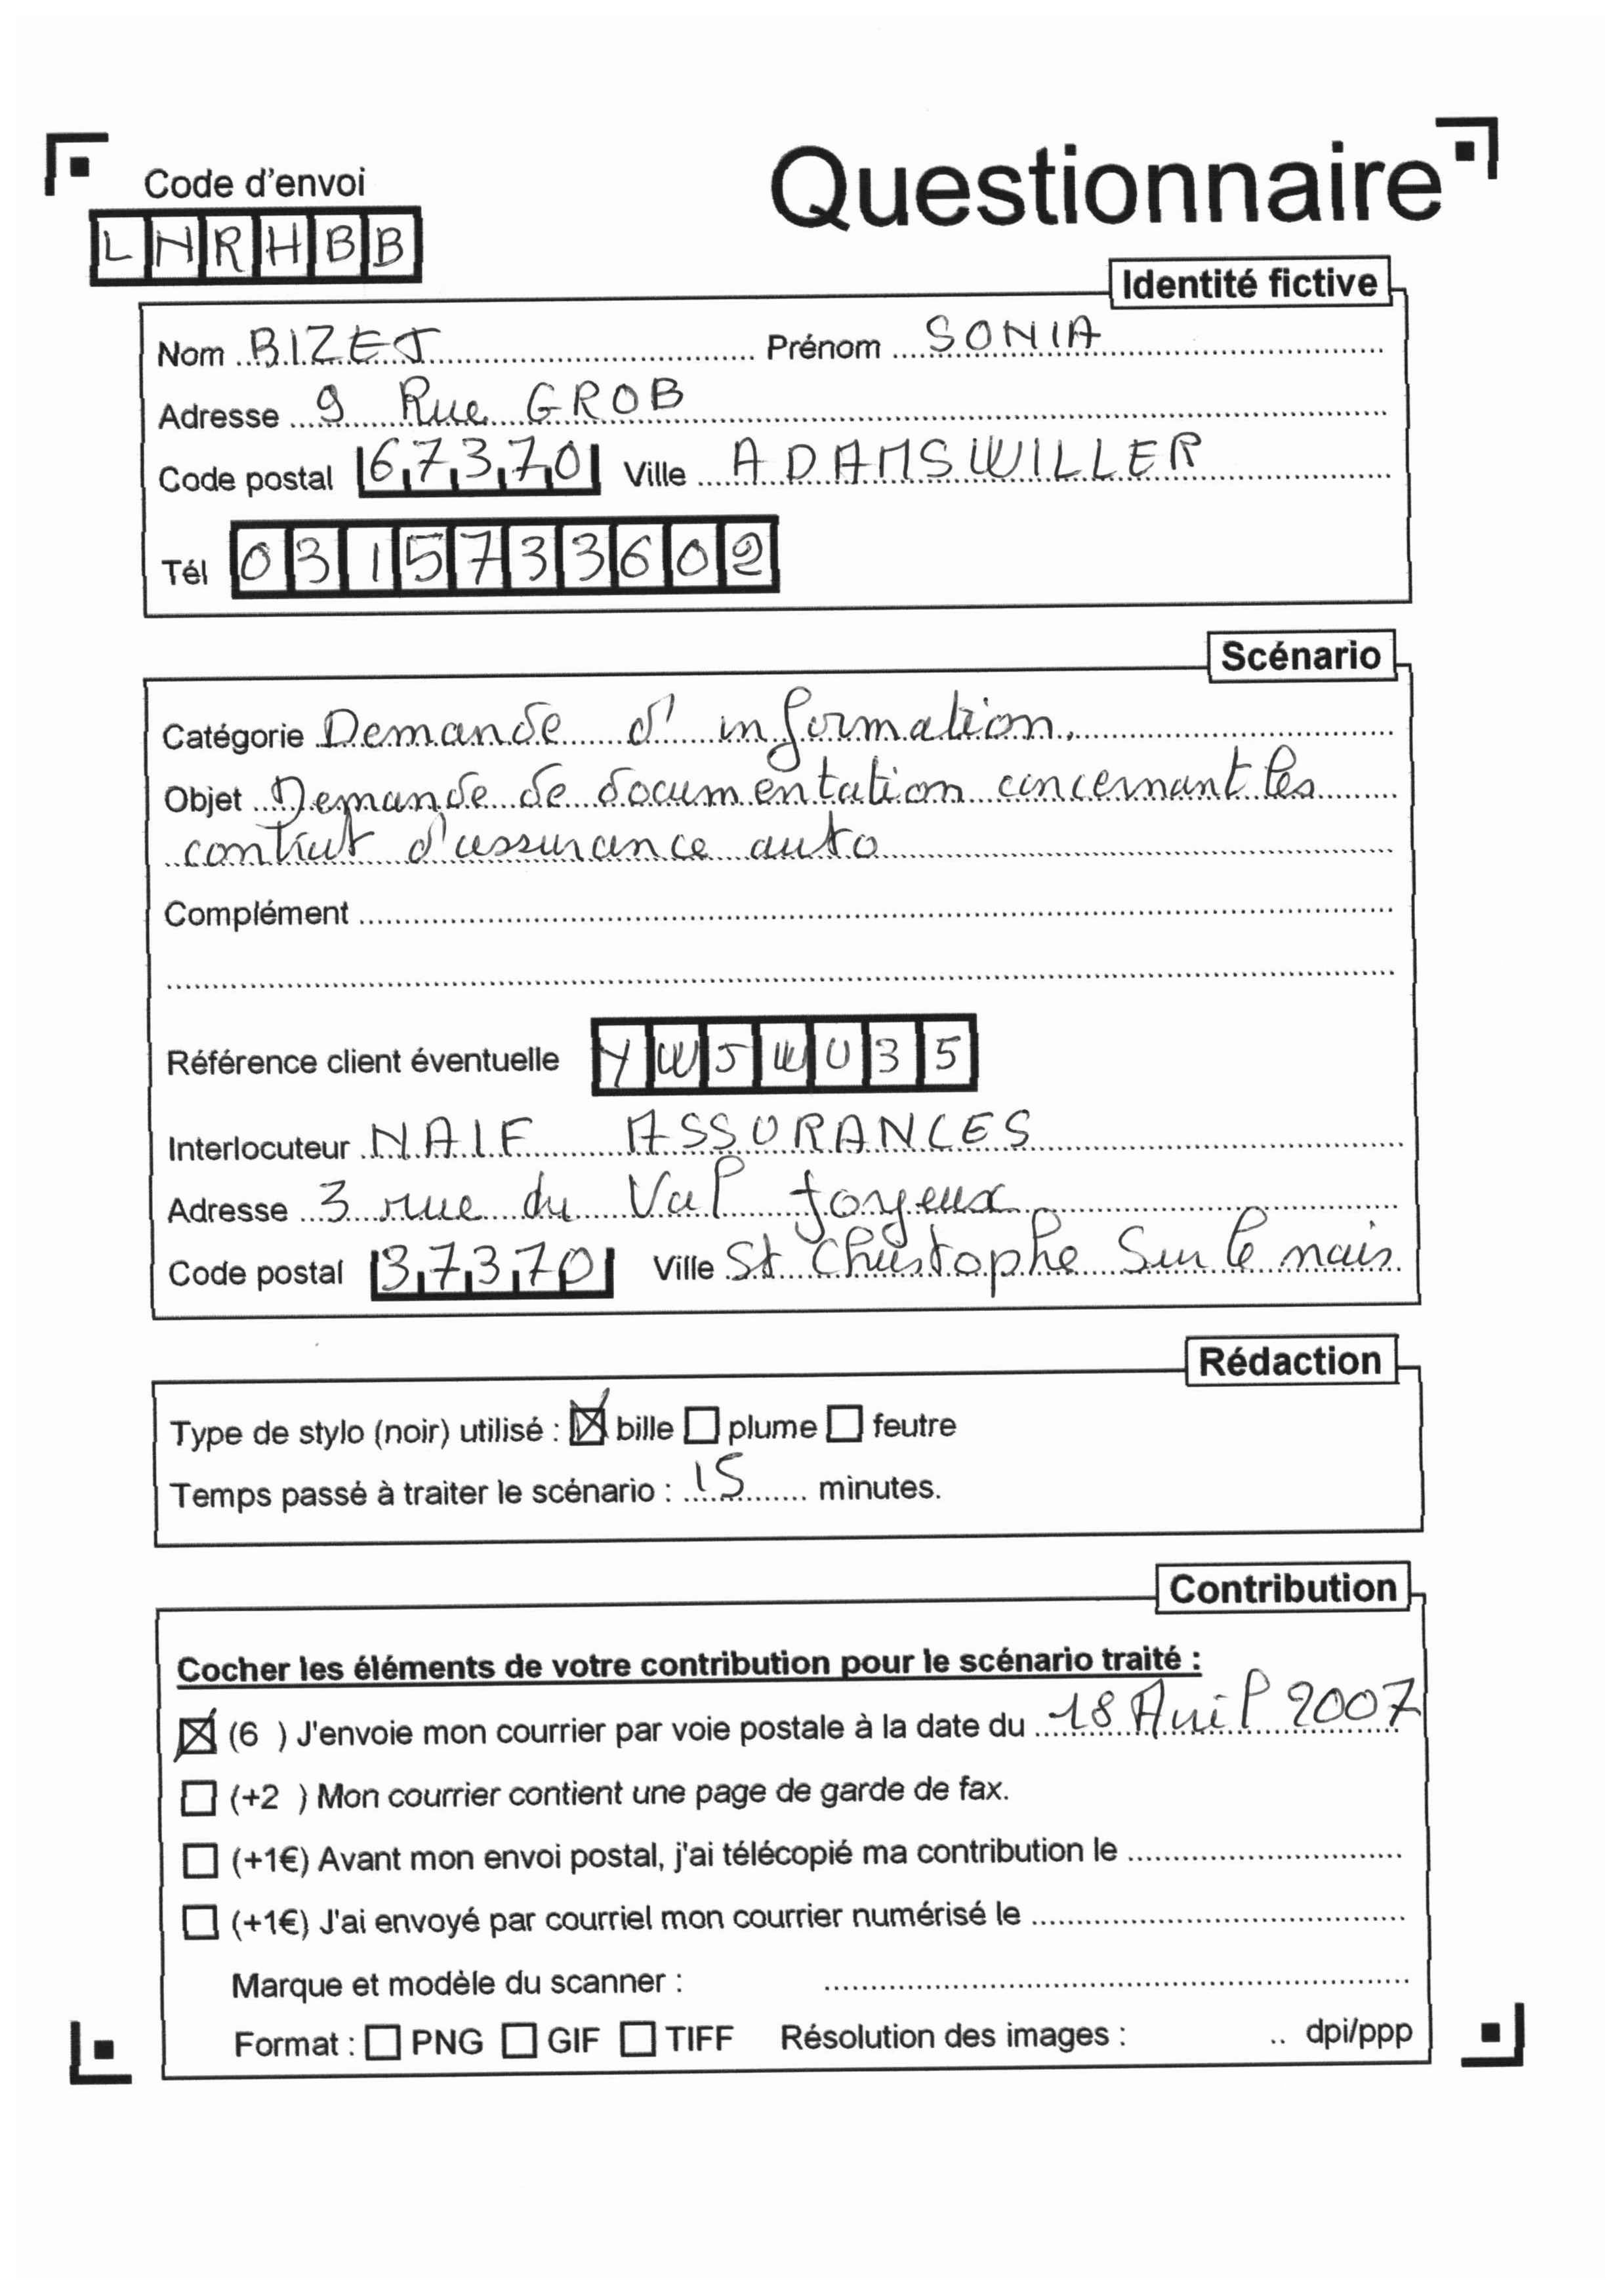 Questionnaire
Code d'envoi
LNRHBB
Identité fictive
Nom BIZET Prénom SONIA
Adresse 9 Rue GROB
Code postal 67370 Ville ADAMSWILLER
Tél 0315733602
Scénario
Catégorie Demande d'information.
Objet Demande de documentation concernant les
contrat d'assurance auto
Complément
Référence client éventuelle YWJWU35
Interlocuteur NAIF ASSURANCES
Adresse 3 rue du Val Joyeux
Code postal 37370 Ville St Christophe Sur le nais
Rédaction
Type de stylo (noir) utilisé : ☒ bille ☐ plume ☐ feutre
Temps passé à traiter le scénario : 15 minutes.
Contribution
Cocher les éléments de votre contribution pour le scénario traité :
☒ (6 ) J'envoie mon courrier par voie postale à la date du 18 Avril 2007
☐ (+2 ) Mon courrier contient une page de garde de fax.
☐ (+1€) Avant mon envoi postal, j'ai télécopié ma contribution le
☐ (+1€) J'ai envoyé par courriel mon courrier numérisé le
Marque et modèle du scanner :
Format : ☐ PNG ☐ GIF ☐ TIFF Résolution des images : .. dpi/ppp